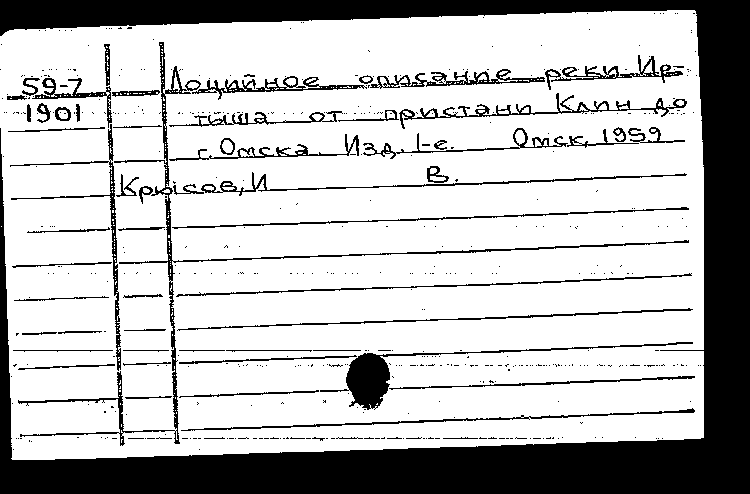 59-7 Лоцийное описание реки Ир-
1901 тыша от пристани Клин до
г. Омска. Изд. 1-е. Омск, 1959
Крысов, И В.